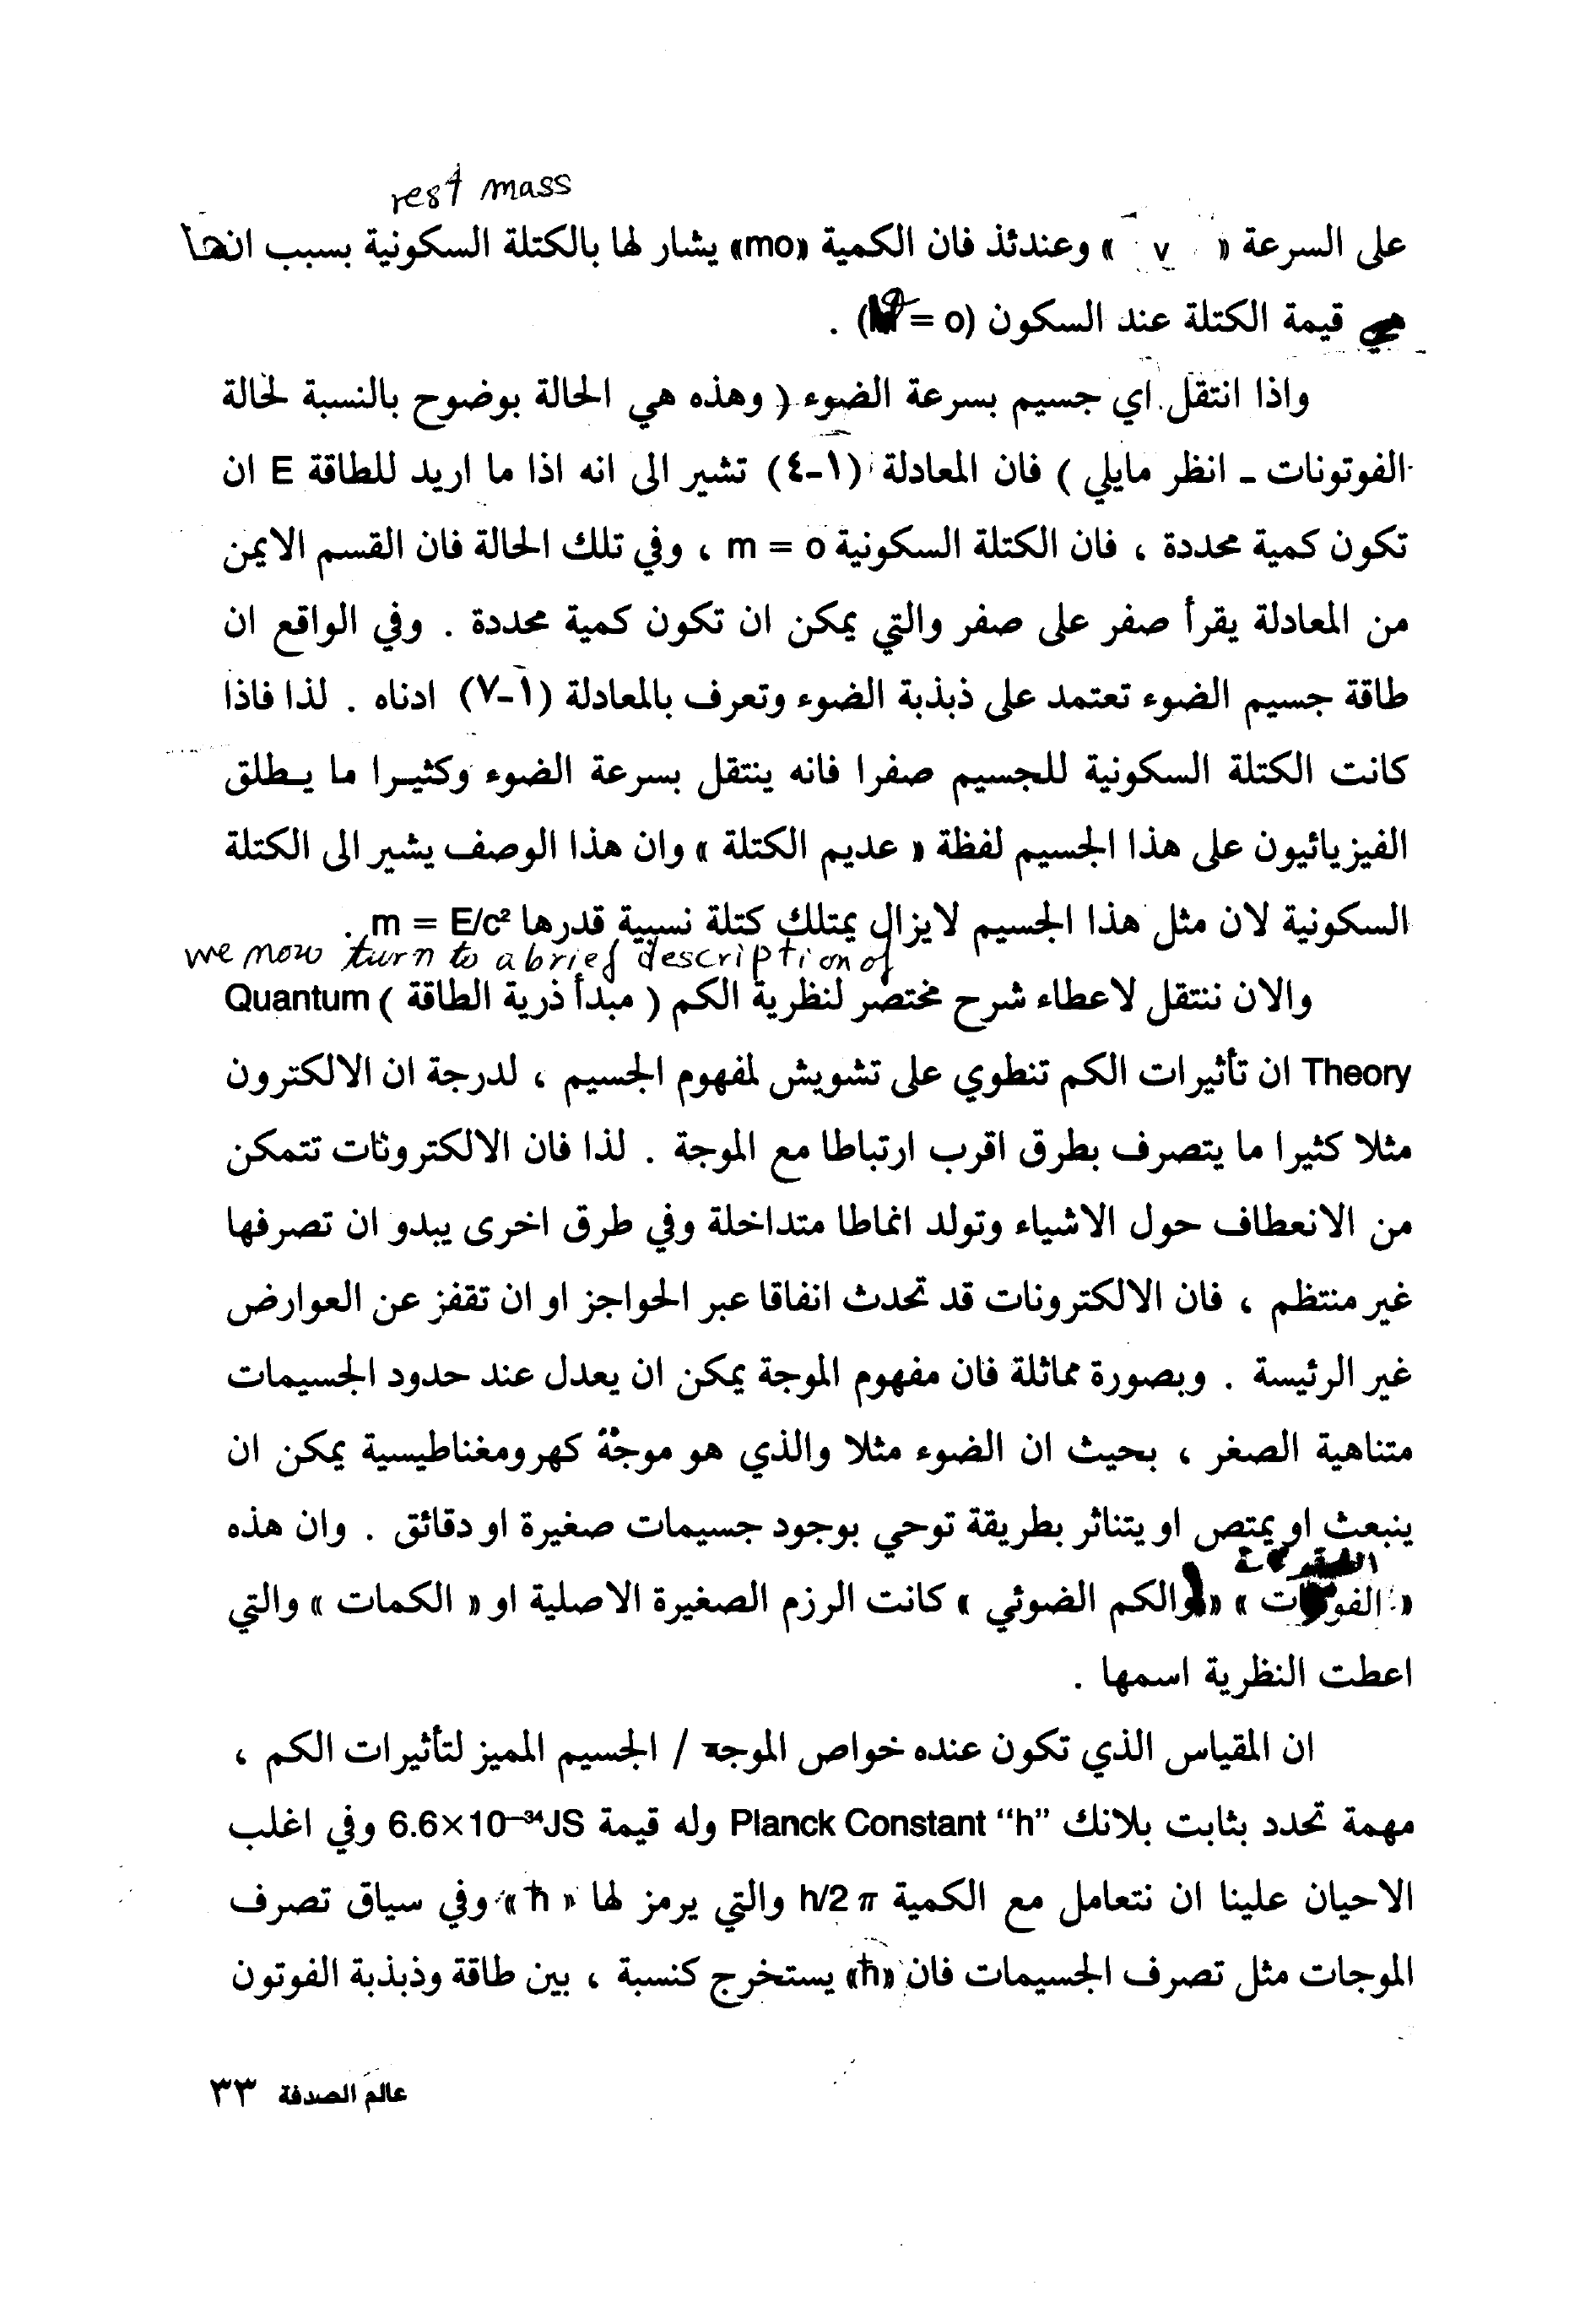 rest mass
على السرعة « v » وعندئذ فان الكمية «mo» يشار لها بالكتلة السكونية بسبب انها
هي قيمة الكتلة عند السكون (v = o) .
واذا انتقل اي جسيم بسرعة الضوء ( وهذه هي الحالة بوضوح بالنسبة لحالة
الفوتونات ـ انظر مايلي ) فان المعادلة (١-٤) تشير الى انه اذا ما اريد للطاقة E ان
تكون كمية محددة ، فان الكتلة السكونية m = o ، وفي تلك الحالة فان القسم الايمن
من المعادلة يقرأ صفر على صفر والتي يمكن ان تكون كمية محددة . وفي الواقع ان
طاقة جسيم الضوء تعتمد على ذبذبة الضوء وتعرف بالمعادلة (١-٧) ادناه . لذا فاذا
كانت الكتلة السكونية للجسيم صفرا فانه ينتقل بسرعة الضوء وكثيرا ما يطلق
الفيزيائيون على هذا الجسيم لفظة « عديم الكتلة » وان هذا الوصف يشير الى الكتلة
السكونية لان مثل هذا الجسيم لايزال يمتلك كتلة نسبية قدرها m = E/c² .
we now turn to a brief description of
والان ننتقل لاعطاء شرح مختصر لنظرية الكم ( مبدأ ذرية الطاقة ) Quantum
Theory ان تأثيرات الكم تنطوي على تشويش لمفهوم الجسيم ، لدرجة ان الالكترون
مثلا كثيرا ما يتصرف بطرق اقرب ارتباطا مع الموجة . لذا فان الالكترونات تتمكن
من الانعطاف حول الاشياء وتولد انماطا متداخلة وفي طرق اخرى يبدو ان تصرفها
غير منتظم ، فان الالكترونات قد تحدث انفاقا عبر الحواجز او ان تقفز عن العوارض
غير الرئيسة . وبصورة مماثلة فان مفهوم الموجة يمكن ان يعدل عند حدود الجسيمات
متناهية الصغر ، بحيث ان الضوء مثلا والذي هو موجة كهرومغناطيسية يمكن ان
ينبعث او يمتص او يتناثر بطريقة توحي بوجود جسيمات صغيرة او دقائق . وان هذه
« » «والكم الضوئي » كانت الرزم الصغيرة الاصلية او « الكمات » والتي
اعطت النظرية اسمها .
ان المقياس الذي تكون عنده خواص الموجة / الجسيم المميز لتأثيرات الكم ،
مهمة تحدد بثابت بلانك Planck Constant “h” وله قيمة 6.6×10⁻³⁴JS وفي اغلب
الاحيان علينا ان نتعامل مع الكمية h/2 π والتي يرمز لها « ħ » وفي سياق تصرف
الموجات مثل تصرف الجسيمات فان «ħ» يستخرج كنسبة ، بين طاقة وذبذبة الفوتون
عالم الصدفة ٣٣